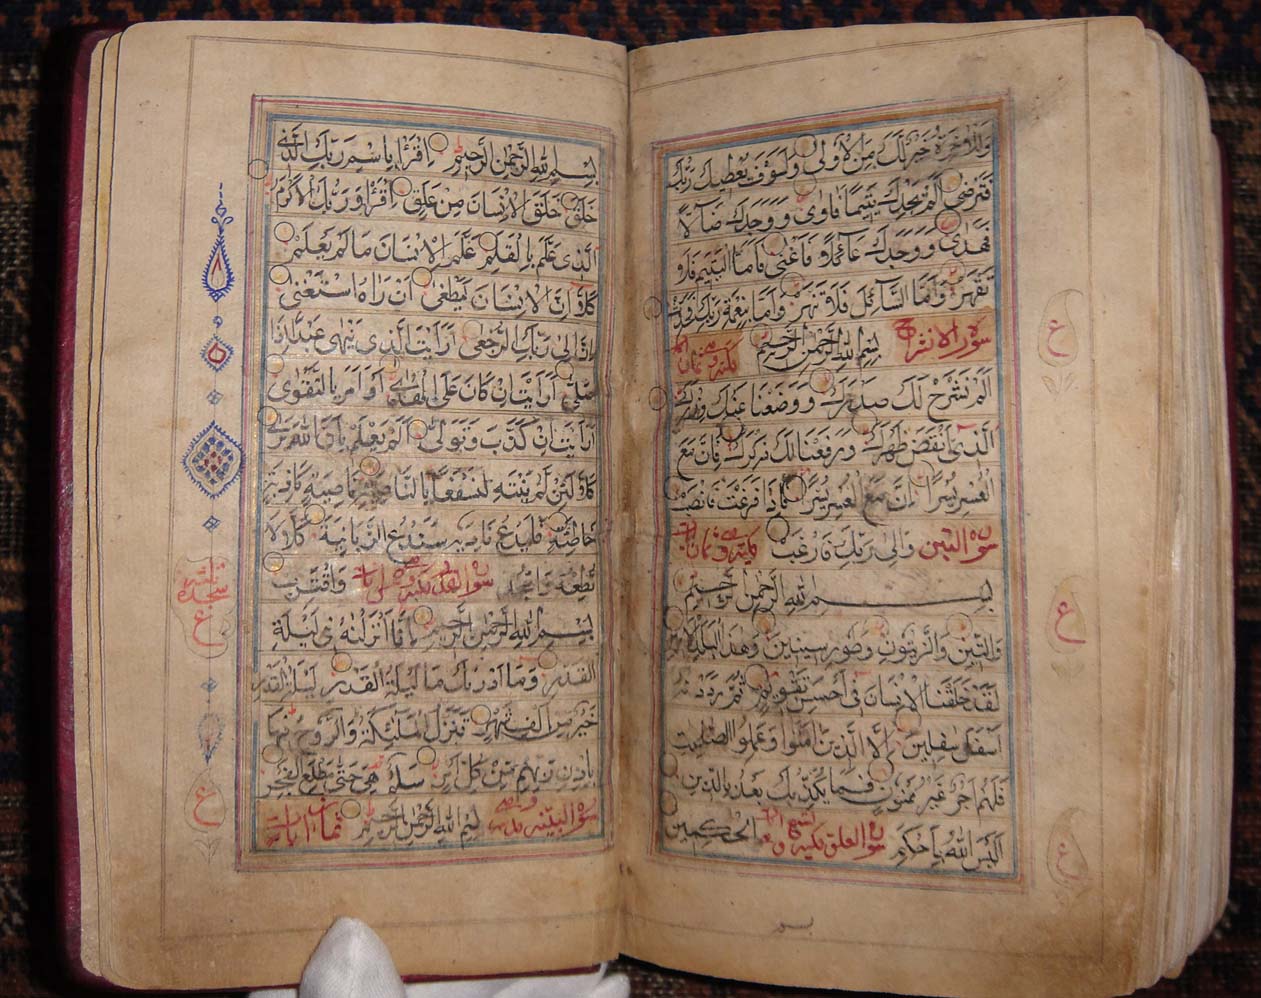 وَالْآخِرَةُ خَيْرٌ لَكَ مِنَ الْأُولَى وَلَسَوْفَ يُعْطِيكَ رَبُّكَ
فَتَرْضَى أَلَمْ يَجِدْكَ يَتِيمًا فَآوَى وَوَجَدَكَ ضَالًّا
فَهَدَى وَوَجَدَكَ عَائِلًا فَأَغْنَى فَأَمَّا الْيَتِيمَ فَلَا
تَقْهَرْ وَأَمَّا السَّائِلَ فَلَا تَنْهَرْ وَأَمَّا بِنِعْمَةِ رَبِّكَ فَحَدِّثْ
سورة الانشرح بِسْمِ اللَّهِ الرَّحْمَنِ الرَّحِيمِ مكية وهي ثمان
أَلَمْ نَشْرَحْ لَكَ صَدْرَكَ وَوَضَعْنَا عَنْكَ وِزْرَكَ
الَّذِي أَنْقَضَ ظَهْرَكَ وَرَفَعْنَا لَكَ ذِكْرَكَ فَإِنَّ مَعَ
الْعُسْرِ يُسْرًا إِنَّ مَعَ الْعُسْرِ يُسْرًا فَإِذَا فَرَغْتَ فَانْصَبْ
سورة التين وَإِلَى رَبِّكَ فَارْغَبْ مكية وهي ثمان
بِسْمِ اللَّهِ الرَّحْمَنِ الرَّحِيمِ
وَالتِّينِ وَالزَّيْتُونِ وَطُورِ سِينِينَ وَهَذَا الْبَلَدِ الْأَمِينِ
لَقَدْ خَلَقْنَا الْإِنْسَانَ فِي أَحْسَنِ تَقْوِيمٍ ثُمَّ رَدَدْنَاهُ
أَسْفَلَ سَافِلِينَ إِلَّا الَّذِينَ آمَنُوا وَعَمِلُوا الصَّالِحَاتِ
فَلَهُمْ أَجْرٌ غَيْرُ مَمْنُونٍ فَمَا يُكَذِّبُكَ بَعْدُ بِالدِّينِ
أَلَيْسَ اللَّهُ بِأَحْكَمِ الْحَاكِمِينَ سورة العلق مكية
ع
ع
ع
بِسْمِ اللَّهِ الرَّحْمَنِ الرَّحِيمِ اقْرَأْ بِاسْمِ رَبِّكَ الَّذِي
خَلَقَ خَلَقَ الْإِنْسَانَ مِنْ عَلَقٍ اقْرَأْ وَرَبُّكَ الْأَكْرَمُ
الَّذِي عَلَّمَ بِالْقَلَمِ عَلَّمَ الْإِنْسَانَ مَا لَمْ يَعْلَمْ
كَلَّا إِنَّ الْإِنْسَانَ لَيَطْغَى أَنْ رَآهُ اسْتَغْنَى
إِنَّ إِلَى رَبِّكَ الرُّجْعَى أَرَأَيْتَ الَّذِي يَنْهَى عَبْدًا إِذَا
صَلَّى أَرَأَيْتَ إِنْ كَانَ عَلَى الْهُدَى أَوْ أَمَرَ بِالتَّقْوَى
أَرَأَيْتَ إِنْ كَذَّبَ وَتَوَلَّى أَلَمْ يَعْلَمْ بِأَنَّ اللَّهَ يَرَى
كَلَّا لَئِنْ لَمْ يَنْتَهِ لَنَسْفَعًا بِالنَّاصِيَةِ نَاصِيَةٍ كَاذِبَةٍ
خَاطِئَةٍ فَلْيَدْعُ نَادِيَهُ سَنَدْعُ الزَّبَانِيَةَ كَلَّا لَا
تُطِعْهُ وَاسْجُدْ سورة القدر مكية وهي آيات وَاقْتَرِبْ
بِسْمِ اللَّهِ الرَّحْمَنِ الرَّحِيمِ إِنَّا أَنْزَلْنَاهُ فِي لَيْلَةِ
الْقَدْرِ وَمَا أَدْرَاكَ مَا لَيْلَةُ الْقَدْرِ لَيْلَةُ الْقَدْرِ
خَيْرٌ مِنْ أَلْفِ شَهْرٍ تَنَزَّلُ الْمَلَائِكَةُ وَالرُّوحُ فِيهَا
بِإِذْنِ رَبِّهِمْ مِنْ كُلِّ أَمْرٍ سَلَامٌ هِيَ حَتَّى مَطْلَعِ الْفَجْرِ
سورة البينة مدنية وهي بِسْمِ اللَّهِ الرَّحْمَنِ الرَّحِيمِ ثمان آيات
سجدة
ع
ع